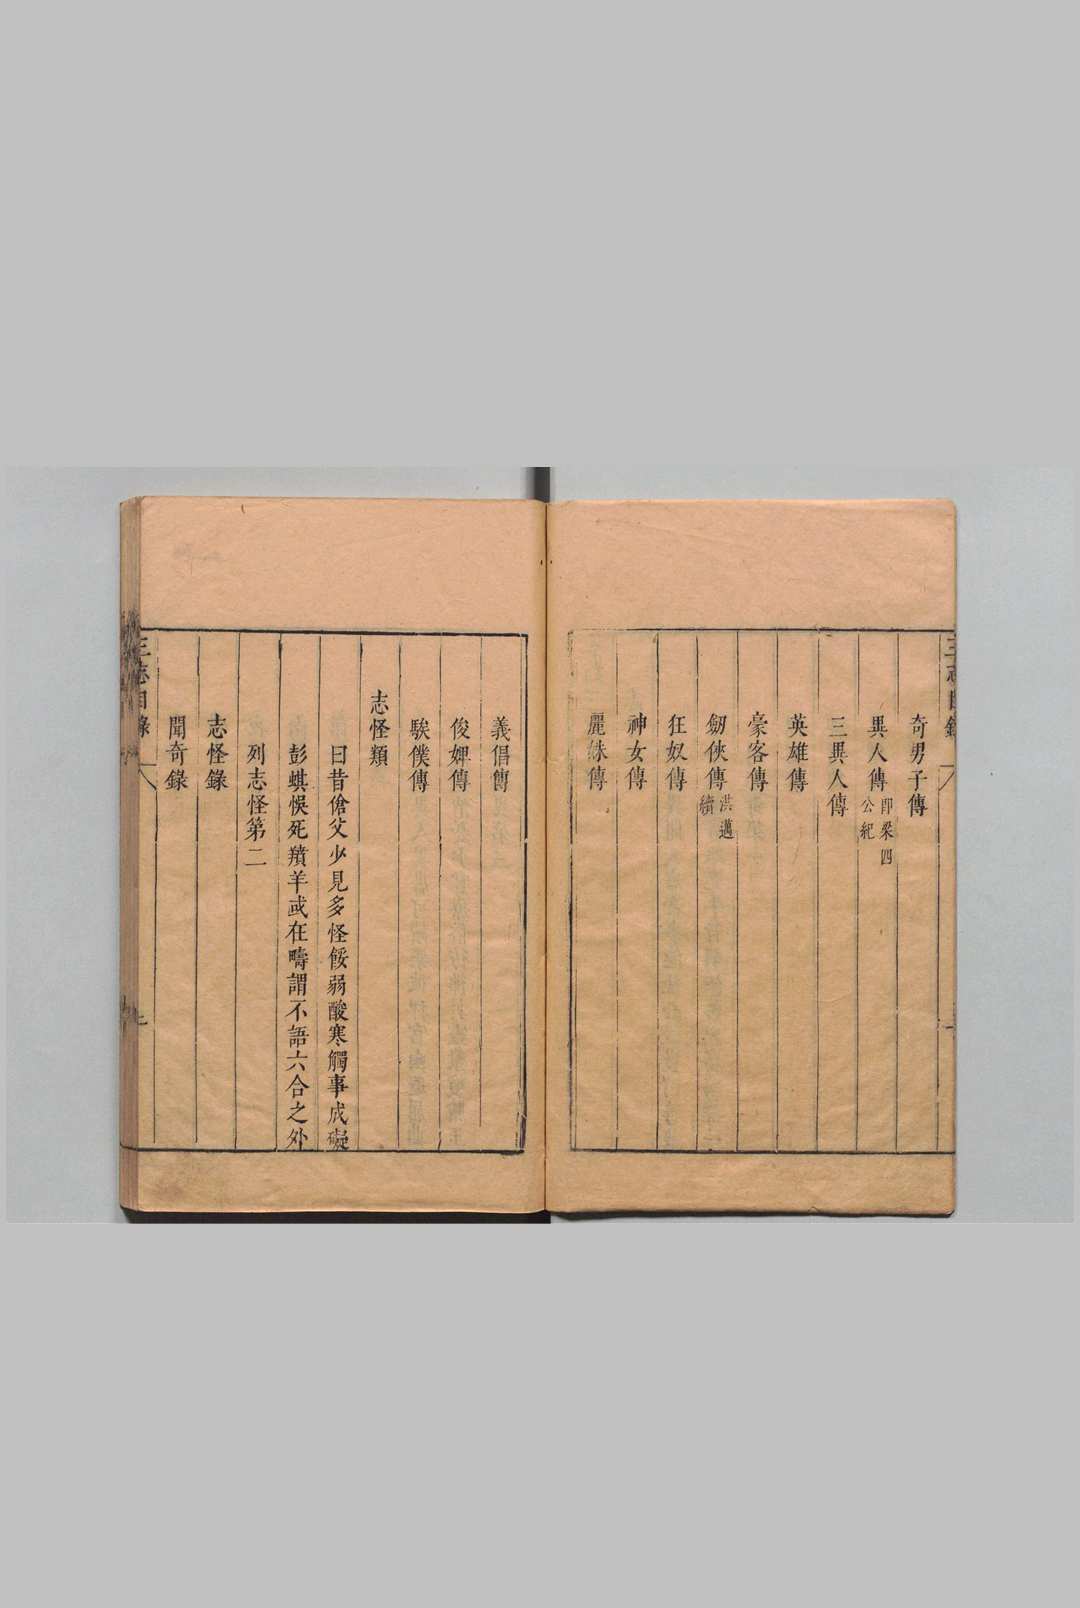 奇男子傳
異人傳 即梁四公紀
三異人傳
英雄傳
豪客傳
劒俠傳 洪邁續
狂奴傳
神女傳
麗姝傳
義倡傳
俊婢傳
騃僕傳
志怪類
曰昔傖父少見多怪餒弱酸寒觸事成礙
彭蜞悞死羵羊或在疇謂不語六合之外
列志怪第二
志怪錄
聞奇錄